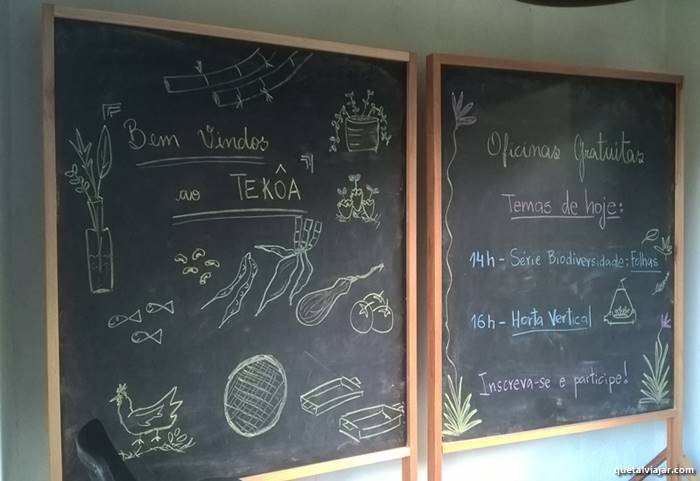 Bem Vindos
ao TEKÔA
Oficinas Gratuitas
Temas de hoje:
14h - Série Biodiversidade: Folhas
16h - Horta Vertical
Inscreva-se e participe!
quetalviajar.com